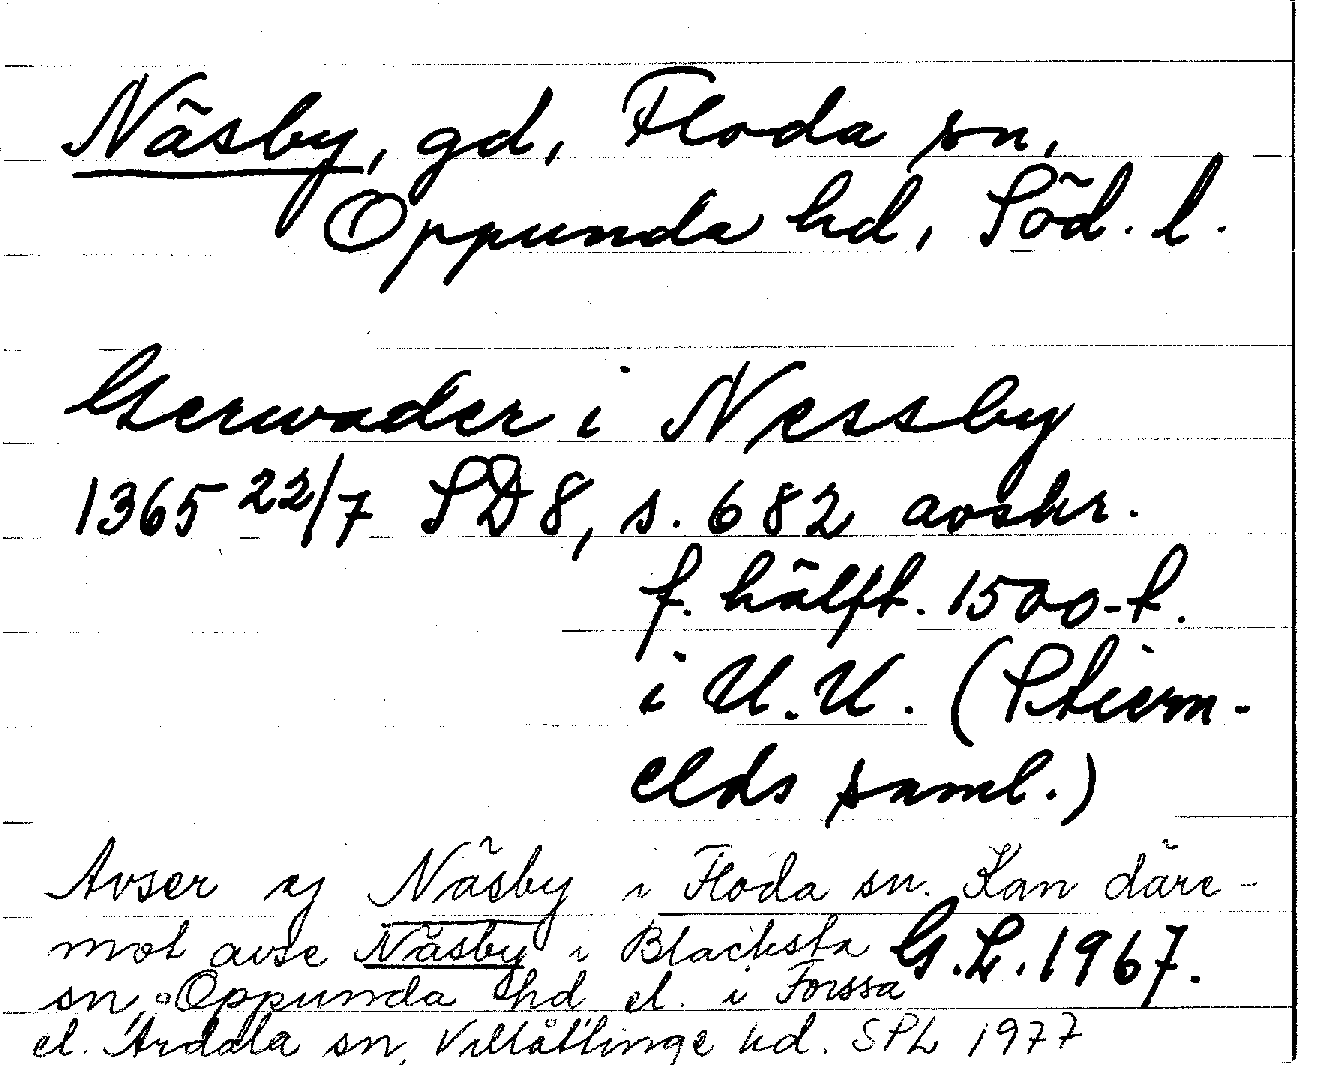 Näsby, gd, Floda sn,
Oppunda hd, Söd. l.
Gerwader i Nessby
1365 22/7 SD 8, s. 682 avskr.
f. hälft. 1500-t.
i U.U. (Stiern-
elds saml.)
Avser ej Näsby i Floda sn. Kan däre-
mot avse Näsby i Blacksta G.L. 1967.
sn, Oppunda hd el. i Forssa
el. Årdala sn, Villåttinge hd. SPL 1977